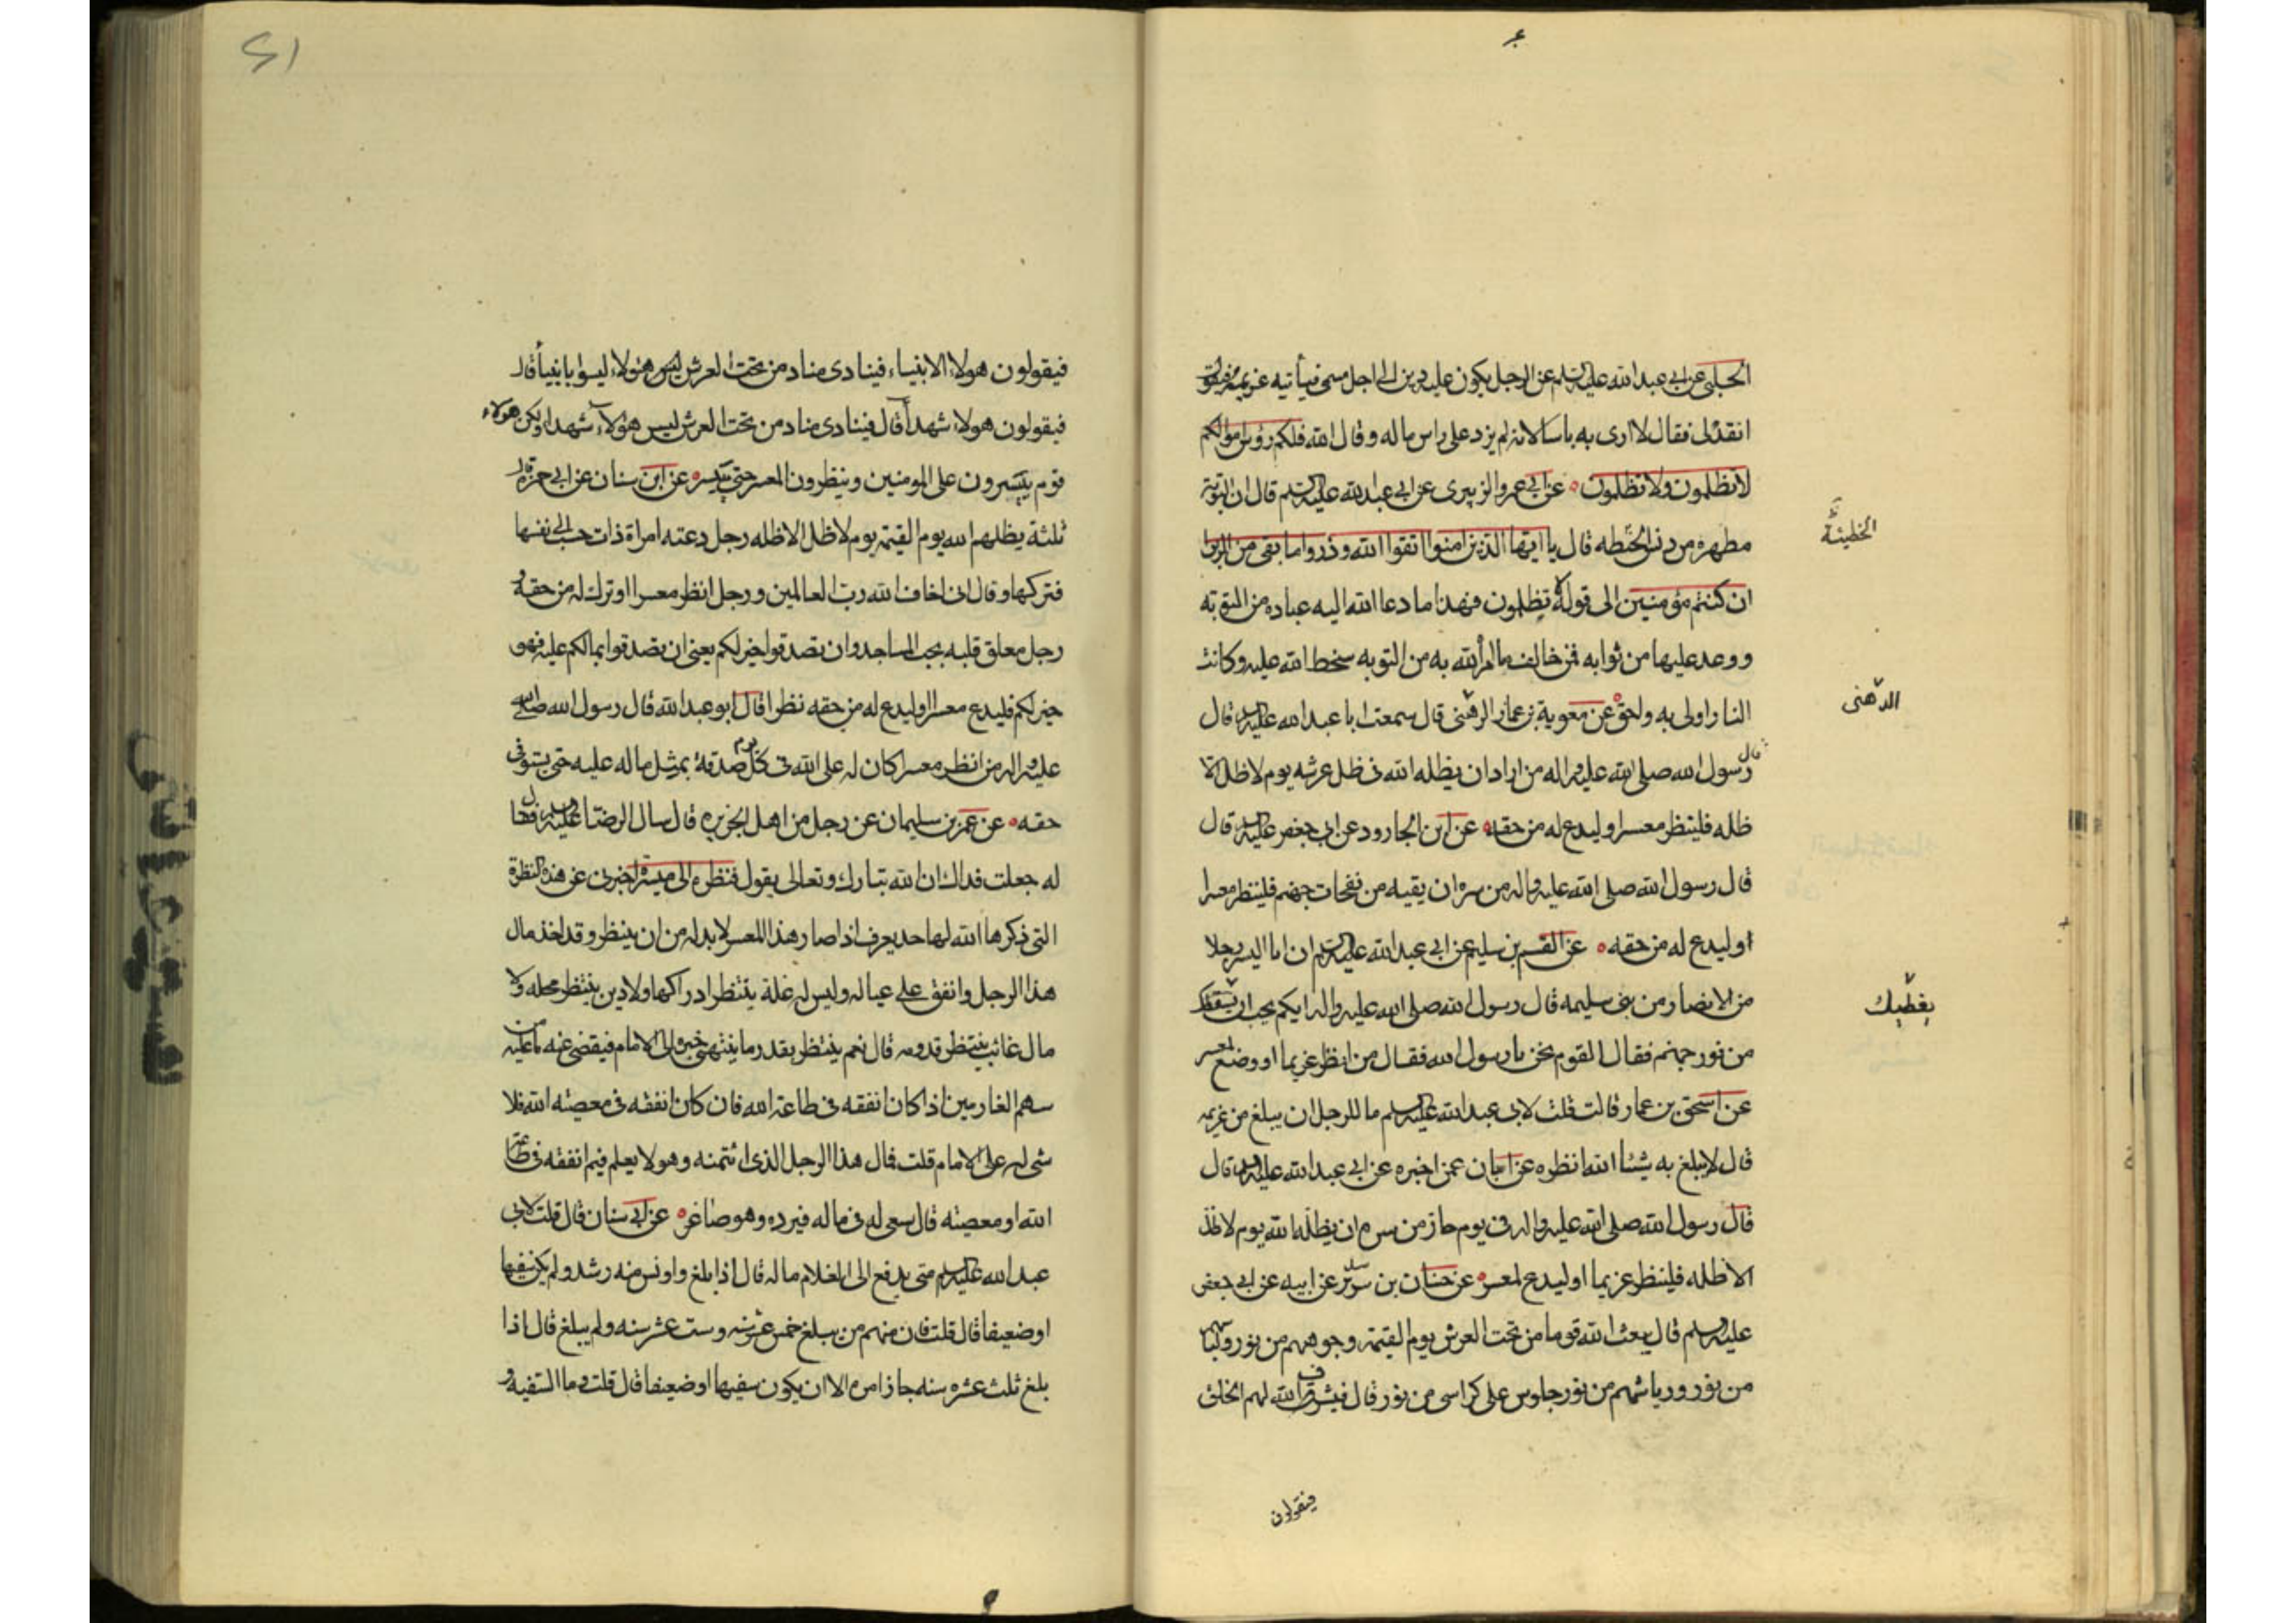 الحلبي عن ابي عبد الله عليه السلم عن الرجل يكون عليه دين الى اجل مسمى فيأتيه غريمه فيقول
انقدلى فقال لا ارى به باسا لانه لم يزد على راس ماله وقال الله فلكم رؤس اموالكم
لا تظلمون ولا تظلمون عن ابي عمرو الزبيرى عن ابي عبد الله عليه السلم قال ان التوبة
مطهره من دنس الخطه قال يا ايها الذين امنوا اتقوا الله وذروا ما بقى من الربوا
الخطيئة
ان كنتم مؤمنين الى قوله لا تظلمون فهذا ما دعا الله اليه عباده من التوبة
ووعد عليها من ثوابه فمن خالف ما امر الله به من التوبه سخط الله عليه وكانت
النار اولى به واحق عن معوية بن عمار الرهنى قال سمعت ابا عبد الله عليه السلم قال
الدهنى
قال رسول الله صلى الله عليه واله من اراد ان يظله الله في ظل عرشه يوم لا ظل الا
ظله فلينظر معسرا وليدع له من حقه عن ابن الجارود عن ابي جعفر عليه السلم قال
قال رسول الله صلى الله عليه واله من سره ان يقيه من نفحات جهنم فلينظر معسرا
او ليدع له من حقه عن القسم بن سليم عن ابي عبد الله عليه السلم ان ابا اليسر رجلا
من الانصار من بنى سليمه قال رسول الله صلى الله عليه واله ايكم يحب ان
من فور جهنم فقال القوم نحن يا رسول الله فقال من انظر غريما او وضع لمعسر
عن اسحق بن عمار قالت قلت لابى عبد الله عليه السلم ما للرجل ان يبلغ من غريمه
قال لا يبلغ به شيئا الله انظره عن ابان عمن اخبره عن ابي عبد الله عليه السلم قال
قال رسول الله صلى الله عليه واله في يوم حار من سره ان يظله الله يوم لا ظل
الا ظله فلينظر غريما او ليدع لمعسر عن حنان بن سدير عن ابيه عن ابي جعفر
عليه السلم قال يبعث الله قوما من تحت العرش يوم القيمة وجوههم من نور ولباسهم
من نور ورياشهم من نور جلوس على كراسى من نور قال فيشرف الله لهم الخلق
فيقولون
فيقولون هولاء الانبياء فينادى مناد من تحت العرش ليس هئولاء ليسوا بانبيا قال
فيقولون هولاء شهدا قال فينادى مناد من تحت العرش ليس هؤلاء شهدا ولكن هولاء
قوم ييسرون على المومنين وينظرون المعسر حتى ييسر عن ابن سنان عن ابي حمزه قال
ثلثة يظلهم الله يوم القيمة يوم لا ظل الا ظله رجل دعته امراة ذات حسب الى نفسها
فتركها وقال انى اخاف الله رب العالمين ورجل انظر معسرا او ترك له من حقه و
رجل معلق قلبه بحب المساجد وان تصدقوا خير لكم يعنى ان تصدقوا بمالكم عليه فهو
خير لكم فليدع معسرا او ليدع له من حقه نظرا قال ابو عبد الله قال رسول الله صلى الله
عليه واله من انظر معسرا كان له على الله في كل يوم صدقة بمثل ماله عليه حتى يستوفى
حقه عن عمر بن سليمان عن رجل من اهل الجزيره قال سال الرضا عليه السلم رجل فقال
له جعلت فداك ان الله تبارك وتعالى يقول فنظره الى ميسرة اخبرنى عن هذه النظرة
التى ذكرها الله لها حد يعرف اذا صار هذا المعسر لا بد له من ان ينظر وقد اخذ مال
هذا الرجل وانفق على عياله وليس له غلة ينتظر ادراكها ولا دين ينتظر محله ولا
مال غائب ينتظر قدومه قال نعم ينتظر بقدر ما ينتهى خبره الى الامام فيقضى عنه ما عليه من
سهم الغارمين اذا كان انفقه في طاعة الله فان كان انفقه في معصية الله فلا
شى له على الامام قلت فمال هذا الرجل الذى ائتمنه وهو لا يعلم فيم انفقه في طاعة
الله او معصيته قال يسعى له في ماله فيرده وهو صاغر عن ابي سنان قال قلت لابى
عبد الله عليه السلم متى يدفع الى الغلام ماله قال اذا بلغ واونس منه رشد ولم يكن سفيها
او ضعيفا قال قلت فان منهم من يبلغ خمس عشر سنه وست عشر سنه ولم يبلغ قال اذا
بلغ ثلث عشره سنه جاز امره الا ان يكون سفيها او ضعيفا قال قلت وما السفيه و